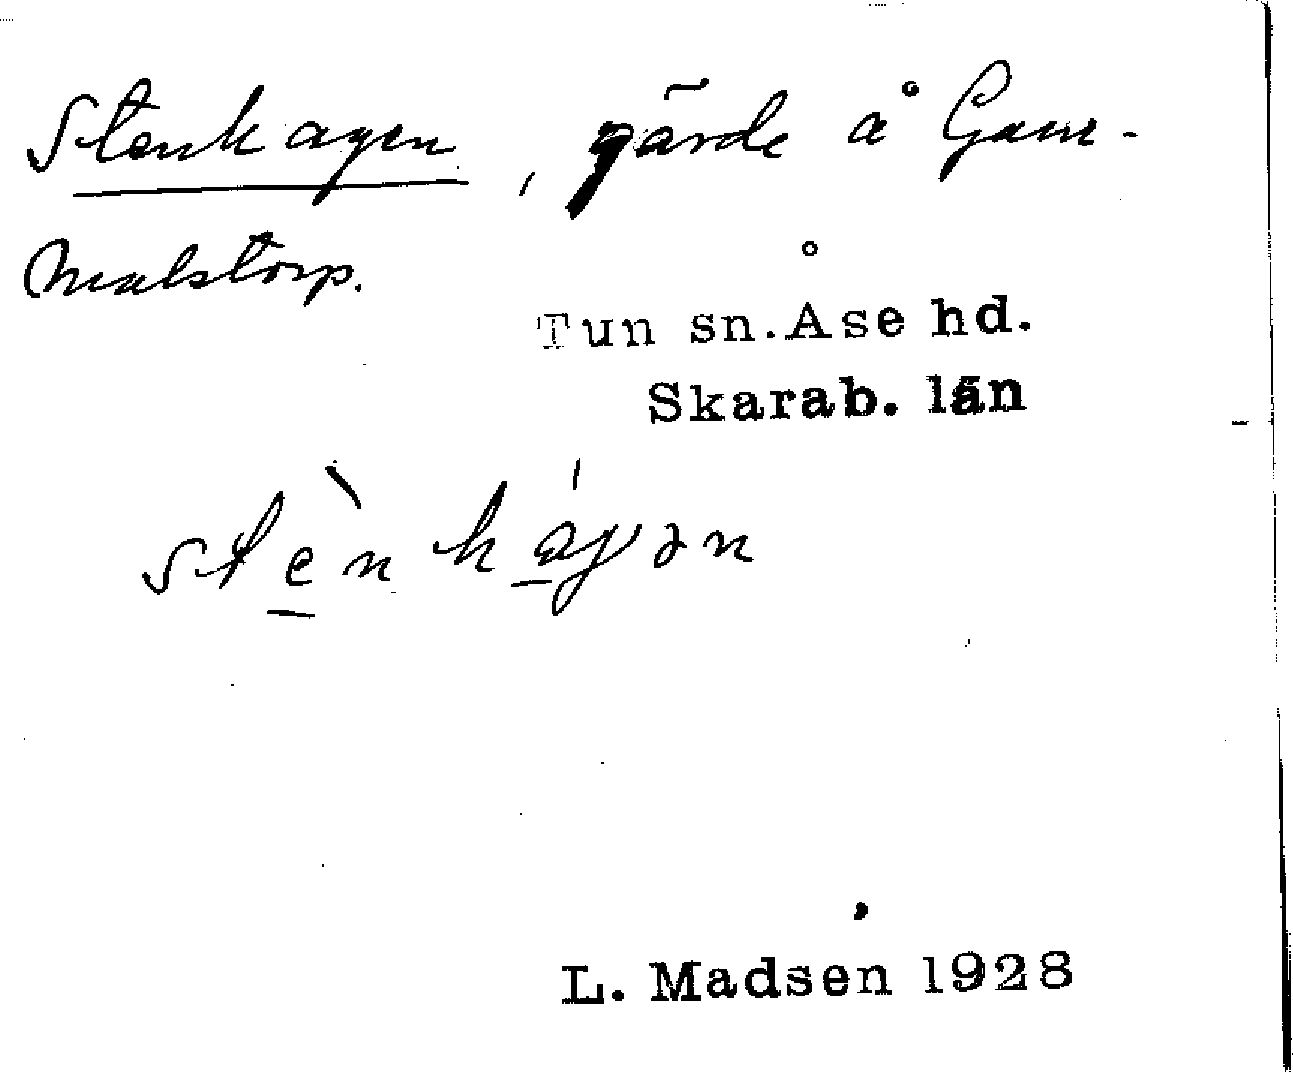 Stenhagen, gärde å Gam-
malstorp.
Tun sn. Åse hd.
Skarab. län
stènhágən
L. Madsen 1928